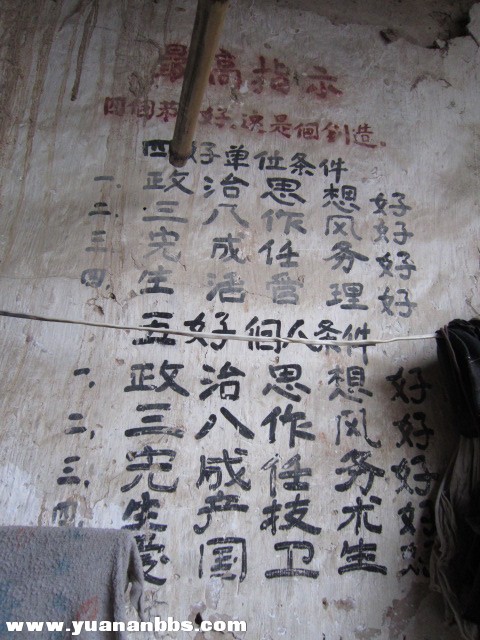 最高指示
四個第 好,这是個创造。
四好单位条件
一、政治思想好
二、三八作风好
三、完成任务好
四、生活管理好
五好個人条件
一、政治思想好
二、三八作风好
三、完成任务好
四、生产技术好
爱国卫生好
www.yuananbbs.com